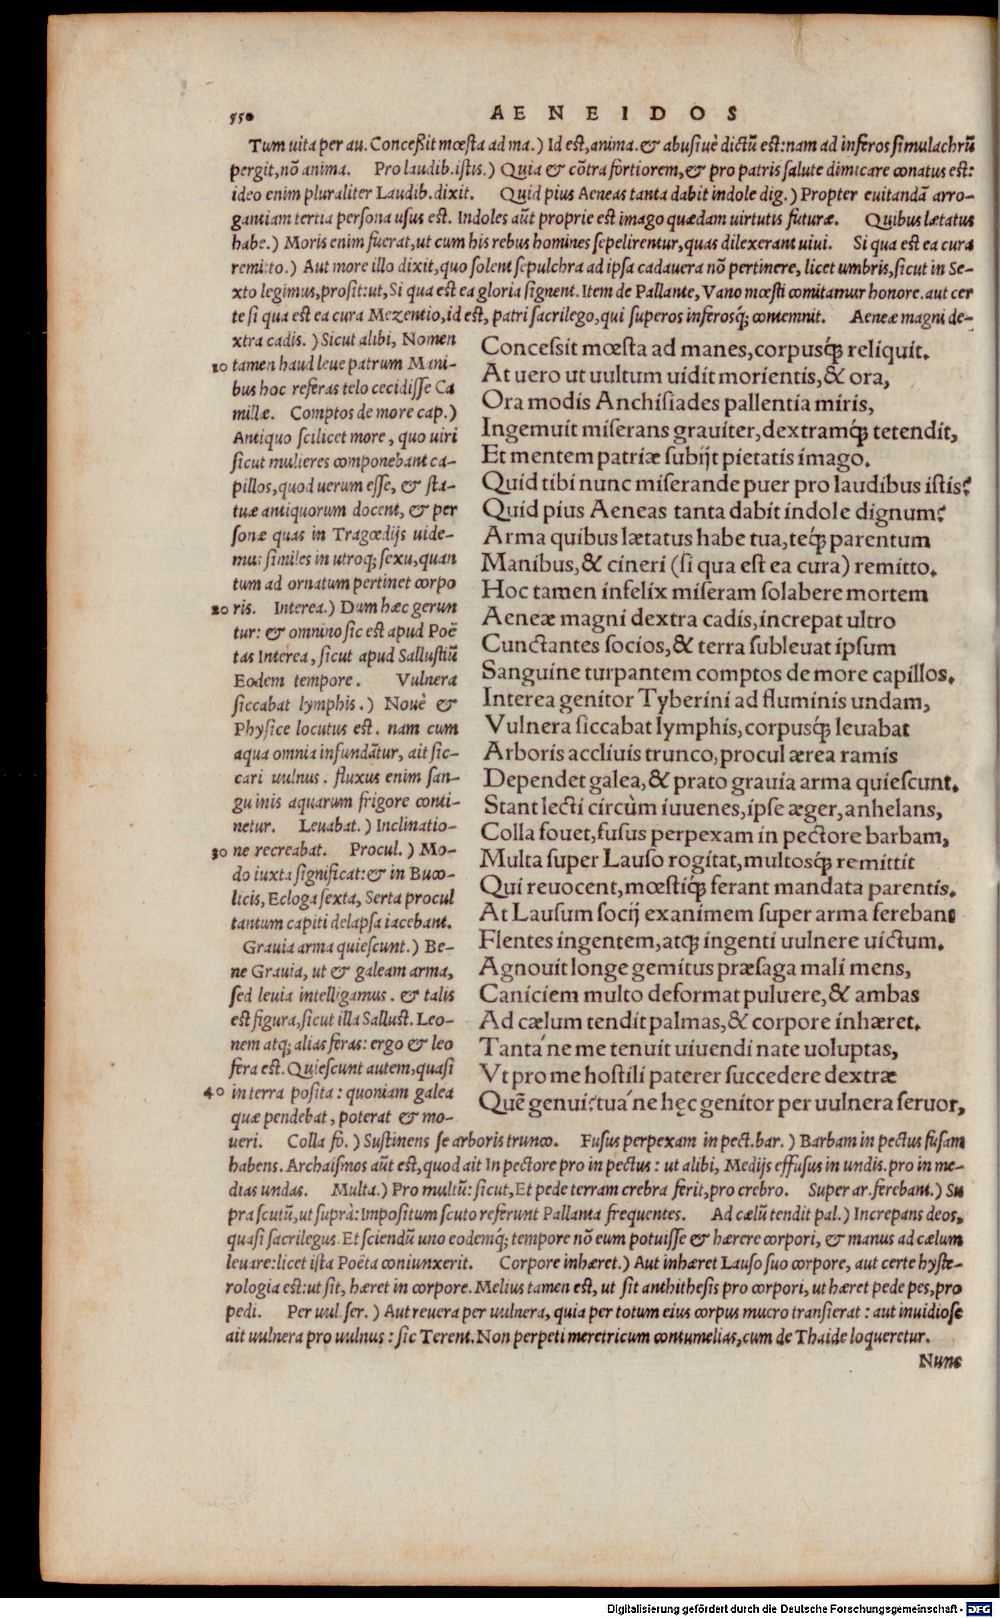 550 AENEIDOS
Tum uita per au. Conceßit mœsta ad ma.) Id est, anima. & abusiuè dictũ est: nam ad inferos simulachrũ
pergit, nõ anima. Pro laudib. istis.) Quia & cõtra fortiorem, & pro patris salute dimicare conatus est:
ideo enim pluraliter Laudib. dixit. Quid pius Aeneas tanta dabit indole dig.) Propter euitandã arro-
gantiam tertia persona usus est. Indoles aũt proprie est imago quædam uirtutis futuræ. Quibus lætatus
habe.) Moris enim fuerat, ut cum his rebus homines sepelirentur, quas dilexerant uiui. Si qua est ea cura
remitto.) Aut more illo dixit, quo solent sepulchra ad ipsa cadauera nõ pertinere, licet umbris, sicut in Se-
xto legimus, prosit: ut, Si qua est ea gloria signent. Item de Pallante, Vano mœsti comitamur honore. aut cer
te si qua est ea cura Mezentio, id est, patri sacrilego, qui superos inferosq́; contemnit. Aeneæ magni de-
xtra cadis.) Sicut alibi, Nomen
20 tamen haud leue patrum Mani-
bus hoc referas telo cecidisse Ca
millæ. Comptos de more cap.)
Antiquo scilicet more, quo uiri
sicut mulieres componebant ca-
pillos, quod uerum esse, & sta-
tuæ antiquorum docent, & per
sonæ quas in Tragœdijs uide-
mus similes in utroq; sexu, quan
tum ad ornatum pertinet corpo
20 ris. Interea.) Dum hæc gerun
tur: & omnino sic est apud Poë
tas Interea, sicut apud Sallustiũ
Eodem tempore. Vulnera
siccabat lymphis.) Nouè &
Physice locutus est. nam cum
aqua omnia infundãtur, ait sic-
cari uulnus. fluxus enim san-
guinis aquarum frigore conti-
netur. Leuabat.) Inclinatio-
30 ne recreabat. Procul.) Mo-
do iuxta significat: & in Buco-
licis, Ecloga sexta, Serta procul
tantum capiti delapsa iacebant.
Grauia arma quiescunt.) Be-
ne Grauia, ut & galeam arma,
sed leuia intelligamus. & talis
est figura, sicut illa Sallust. Leo-
nem atq; alias feras: ergo & leo
fera est. Quiescunt autem, quasi
40 in terra posita: quoniam galea
quæ pendebat, poterat & mo-
Conceßit mœsta ad manes, corpusq́; reliquit.
At uero ut uultum uidit morientis, & ora,
Ora modis Anchisiades pallentia miris,
Ingemuit miserans grauiter, dextramq́; tetendit,
Et mentem patriæ subijt pietatis imago.
Quid tibi nunc miserande puer pro laudibus istis?
Quid pius Aeneas tanta dabit indole dignum?
Arma quibus lætatus habe tua, teq́; parentum
Manibus, & cineri (si qua est ea cura) remitto.
Hoc tamen infelix miseram solabere mortem
Aeneæ magni dextra cadis, increpat ultro
Cunctantes socios, & terra subleuat ipsum
Sanguine turpantem comptos de more capillos.
Interea genitor Tyberini ad fluminis undam,
Vulnera siccabat lymphis, corpusq́; leuabat
Arboris accliuis trunco, procul ærea ramis
Dependet galea, & prato grauia arma quiescunt.
Stant lecti circùm iuuenes, ipse æger, anhelans,
Colla fouet, fusus perpexam in pectore barbam,
Multa super Lauso rogitat, multosq́; remittit
Qui reuocent, mœstiq́; ferant mandata parentis.
At Lausum socij exanimem super arma ferebant
Flentes ingentem, atq; ingenti uulnere uictum.
Agnouit longe gemitus præsaga mali mens,
Caniciem multo deformat puluere, & ambas
Ad cælum tendit palmas, & corpore inhæret.
Tanta´ne me tenuit uiuendi nate uoluptas,
Vt pro me hostili paterer succedere dextræ
Quẽ genui? tua´ne hęc genitor per uulnera seruor,
ueri. Colla fo.) Sustinens se arboris trunco. Fusus perpexam in pect. bar.) Barbam in pectus fusam
habens. Archaismos aũt est, quod ait In pectore pro in pectus: ut alibi, Medijs effusus in undis. pro in me-
dias undas. Multa.) Pro multũ: sicut, Et pede terram crebra ferit, pro crebro. Super ar. ferebant.) Su
pra scutũ, ut suprà: Impositum scuto referunt Pallanta frequentes. Ad cælũ tendit pal.) Increpans deos,
quasi sacrilegus. Et sciendũ uno eodemq́; tempore nõ eum potuisse & hærere corpori, & manus ad cælum
leuare: licet ista Poëta coniunxerit. Corpore inhæret.) Aut inhæret Lauso suo corpore, aut certe hyste-
rologia est: ut sit, hæret in corpore. Melius tamen est, ut sit anthithesis pro corpori, ut hæret pede pes, pro
pedi. Per uul. ser.) Aut reuera per uulnera, quia per totum eius corpus mucro transierat: aut inuidiose
ait uulnera pro uulnus: sic Terent. Non perpeti meretricum contumelias, cum de Thaide loqueretur.
Nunc
Digitalisierung gefördert durch die Deutsche Forschungsgemeinschaft - DFG